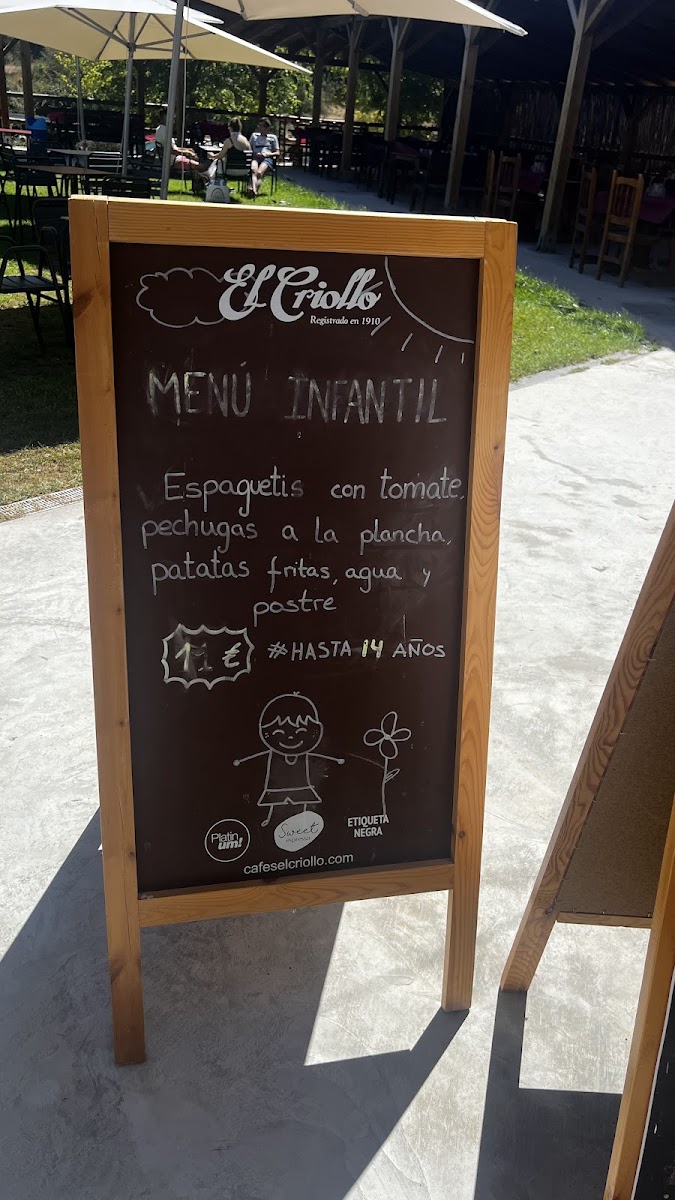 El Criollo
Registrado en 1910
MENÚ INFANTIL
Espaguetis con tomate,
pechugas a la plancha,
patatas fritas, agua y
postre
11 €
#HASTA 14 AÑOS
Platin um!
Sweet
espresso
ETIQUETA
NEGRA
cafeselcriollo.com